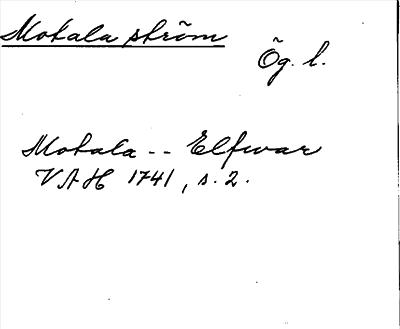 Motala ström
Ög. l.
Motala -- Elfwar
VAH 1741, s. 2.